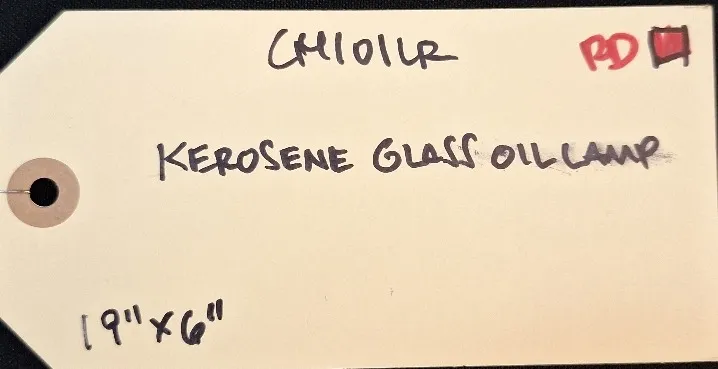 CM101LR RD
KEROSENE GLASS OIL LAMP
19" x 6"